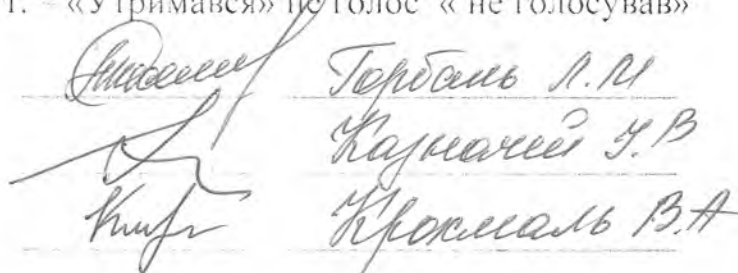 «Утримався» голос « не голосував»
Горбань Л.М
Казначей У.В
Крохмаль В.А